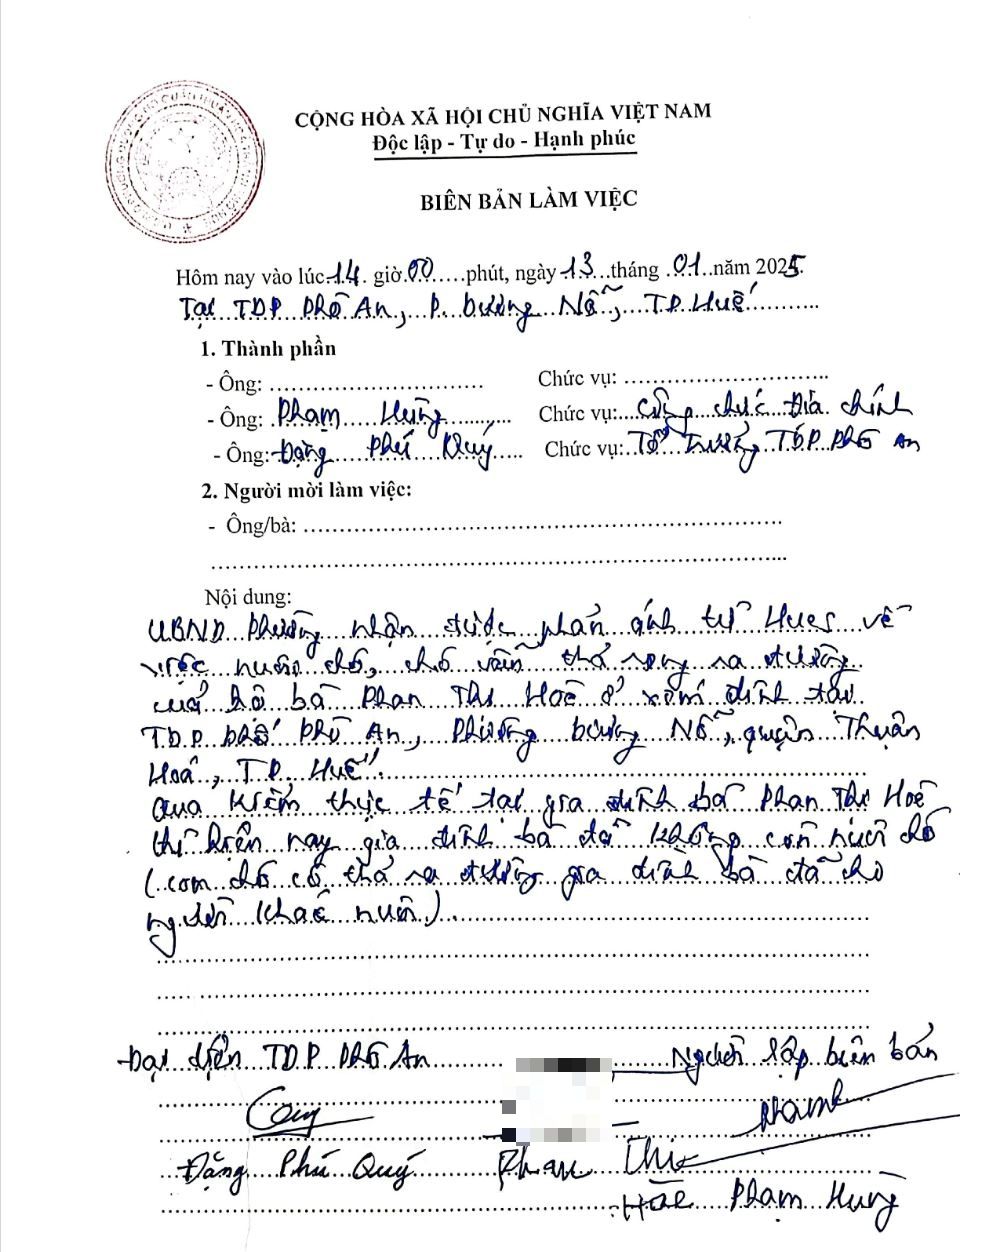 CỘNG HÒA XÃ HỘI CHỦ NGHĨA VIỆT NAM
Độc lập - Tự do - Hạnh phúc
BIÊN BẢN LÀM VIỆC
Hôm nay vào lúc 14 giờ 00 phút, ngày 13 tháng 01 năm 2025.
Tại TDP Phò An, P. Dương Nỗ, TP Huế
1. Thành phần
- Ông: ............................ Chức vụ: ............................
- Ông: Phạm Hùng Chức vụ: Công chức Địa chính
- Ông: Đặng Phú Quý Chức vụ: Tổ Trưởng TDP Phò An
2. Người mời làm việc:
- Ông/bà: ............................
Nội dung:
UBND Phường nhận được phản ánh từ Hues về
việc nuôi chó, chó vẫn thả rong ra đường
của hộ bà Phan Thị Hoè ở xóm đình
TDP Phò An, Phường Dương Nỗ, quận Thuận
Hoá, TP Huế.
Qua kiểm thực tế tại gia đình bà Phan Thị Hoè
thì hiện nay gia đình bà đã không còn nuôi chó
(con chó có thả ra đường gia đình bà đã cho
người khác nuôi).
Đại diện TDP Phò An Người lập biên bản
Đặng Phú Quý Phan Thị
Hòe Phạm Hùng